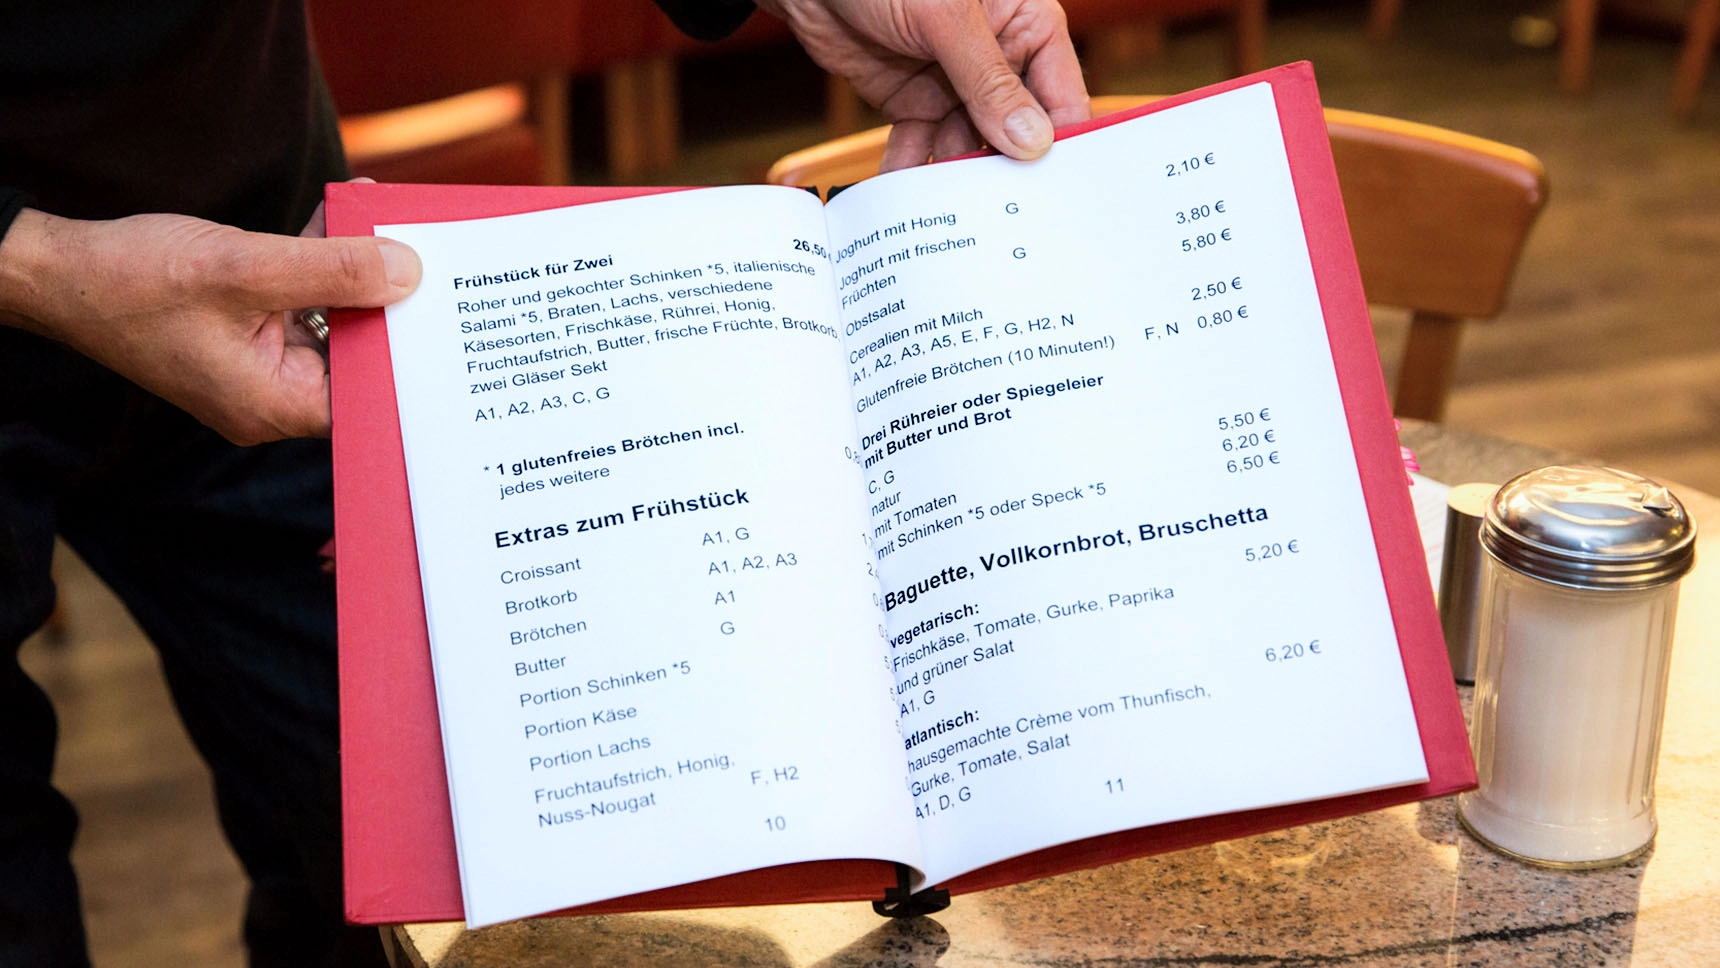 Frühstück für Zwei 26,50
Roher und gekochter Schinken *5, italienische
Salami *5, Braten, Lachs, verschiedene
Käsesorten, Frischkäse, Rührei, Honig,
Fruchtaufstrich, Butter, frische Früchte, Brotkorb
zwei Gläser Sekt
A1, A2, A3, C, G
* 1 glutenfreies Brötchen incl.
jedes weitere
Extras zum Frühstück
Croissant A1, G
Brotkorb A1, A2, A3
Brötchen A1
Butter G
Portion Schinken *5
Portion Käse
Portion Lachs
Fruchtaufstrich, Honig,
Nuss-Nougat F, H2
10
Joghurt mit Honig G 2,10 €
Joghurt mit frischen
Früchten G 3,80 €
Obstsalat 5,80 €
Cerealien mit Milch
A1, A2, A3, A5, E, F, G, H2, N 2,50 €
Glutenfreie Brötchen (10 Minuten!) F, N 0,80 €
Drei Rühreier oder Spiegeleier
mit Butter und Brot
C, G
natur 5,50 €
mit Tomaten 6,20 €
mit Schinken *5 oder Speck *5 6,50 €
Baguette, Vollkornbrot, Bruschetta
vegetarisch: 5,20 €
Frischkäse, Tomate, Gurke, Paprika
und grüner Salat
A1, G
atlantisch: 6,20 €
hausgemachte Crème vom Thunfisch,
Gurke, Tomate, Salat
A1, D, G
11